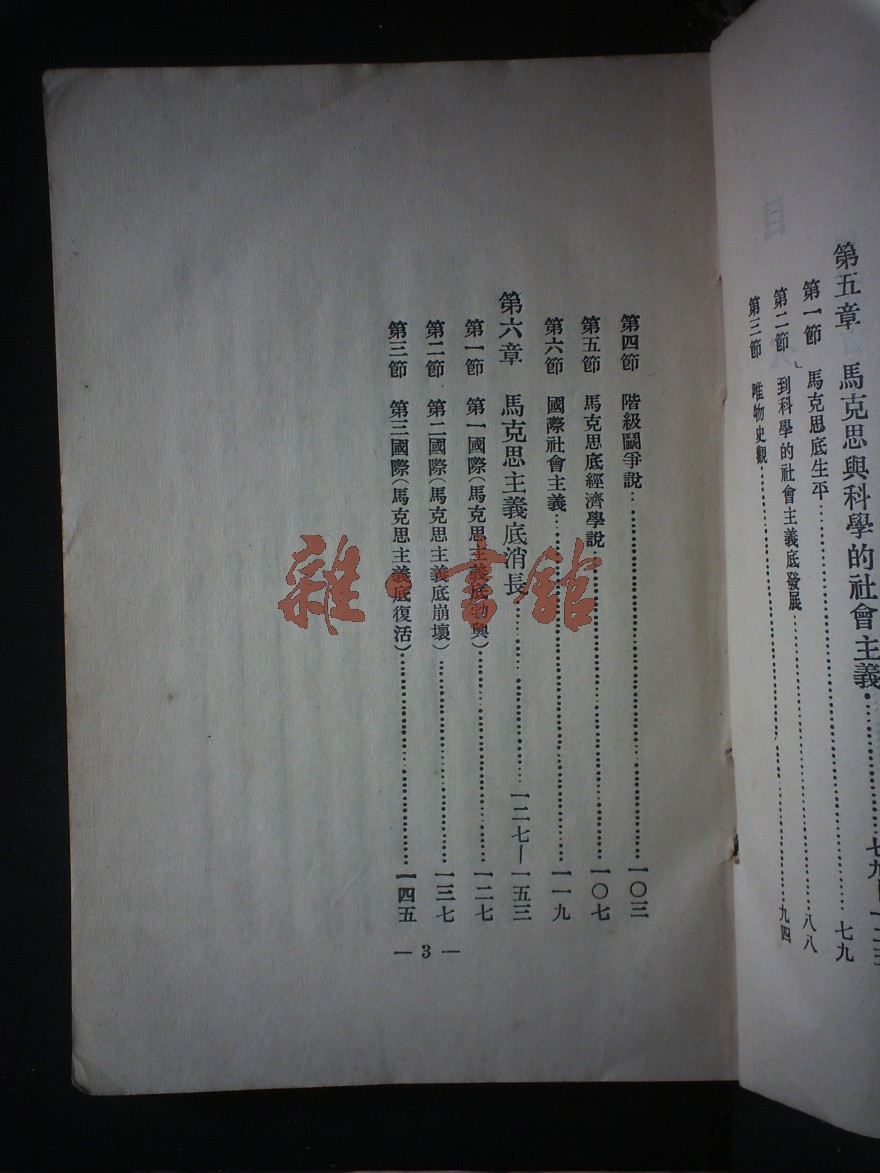 第五章 馬克思與科學的社會主義……七九
第一節 馬克思底生平……七九
第二節 到科學的社會主義底發展……八八
第三節 唯物史觀……九四
第四節 階級鬪爭說……一〇三
第五節 馬克思底經濟學說……一〇七
第六節 國際社會主義……一一九
第六章 馬克思主義底消長……一二七—一五三
第一節 第一國際(馬克思主義底勃興)……一二七
第二節 第二國際(馬克思主義底崩壞)……一三七
第三節 第三國際(馬克思主義底復活)……一四五
— 3 —
雜·書館
目